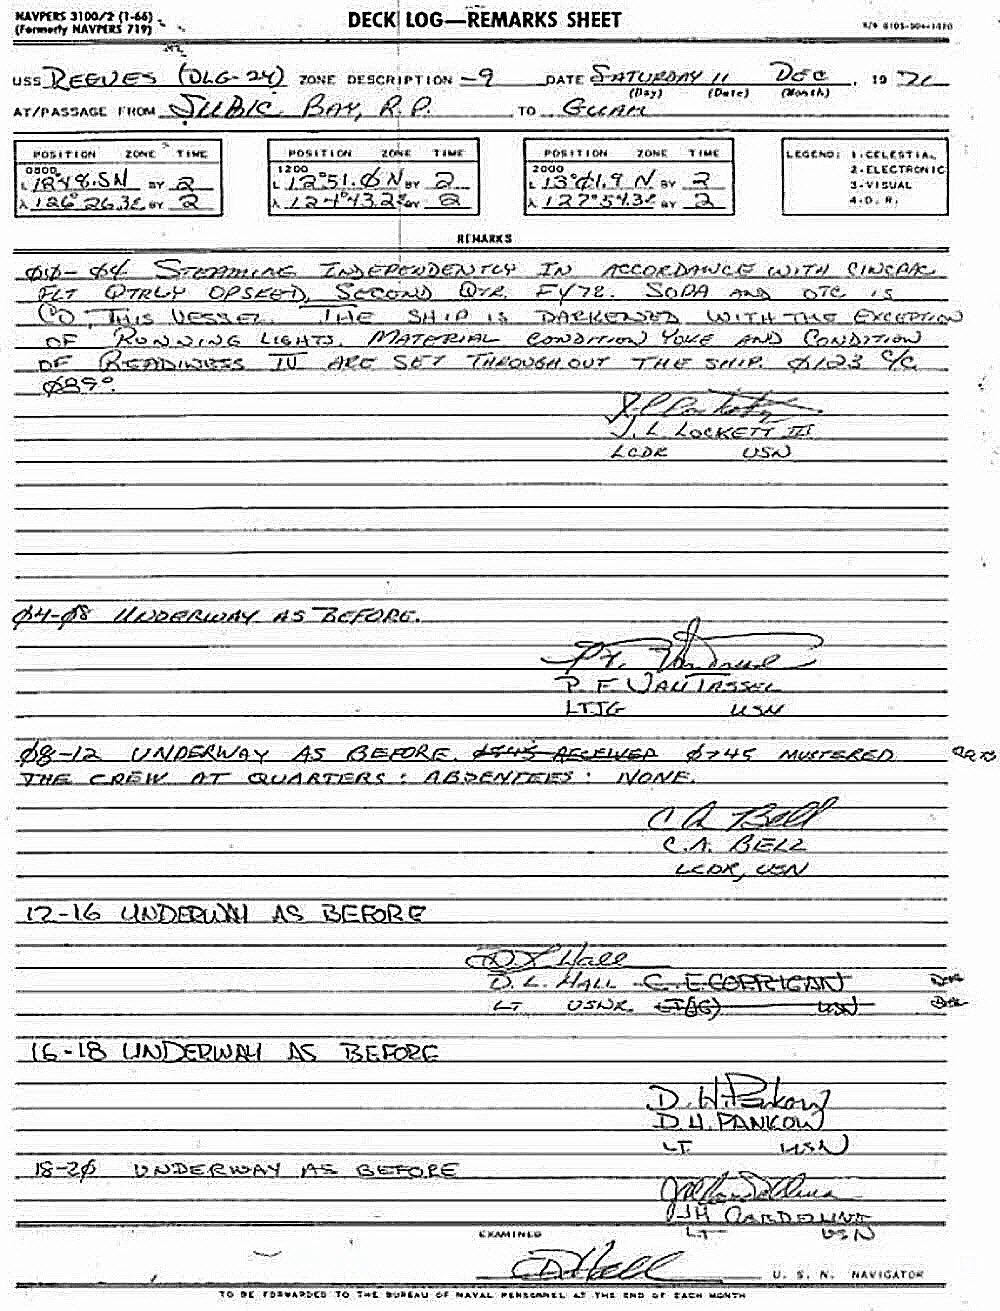 NAVPERS 3100/2 (1-66)
(Formerly NAVPERS 719)
DECK LOG—REMARKS SHEET
USS REEVES (DLG-24) ZONE DESCRIPTION -9 DATE SATURDAY 11 DEC, 19 71
(Day) (Date) (Month)
AT/PASSAGE FROM SUBIC BAY, R.P. TO GUAM
POSITION ZONE TIME
0800
L 12°48.5N BY 2
λ 126°26.3E BY 2
POSITION ZONE TIME
1200
L 12°51.0N BY 2
λ 124°43.2E BY 2
POSITION ZONE TIME
2000
L 13°01.9 N BY 2
λ 127°54.3E BY 2
LEGEND: 1-CELESTIAL
2-ELECTRONIC
3-VISUAL
4-D. R.
REMARKS
ØØ-Ø4 STEAMING INDEPENDENTLY IN ACCORDANCE WITH CINCPAC
FLT QTRLY OPSKED, SECOND QTR. FY72. SOPA AND OTC IS
CO, THIS VESSEL. THE SHIP IS DARKENED WITH THE EXCEPTION
OF RUNNING LIGHTS. MATERIAL CONDITION YOKE AND CONDITION
OF READINESS IV ARE SET THROUGHOUT THE SHIP. Ø123 C/C
Ø89°
J. L. LOCKETT III
LCDR USN
Ø4-Ø8 UNDERWAY AS BEFORE.
P. F. VAN TASSEL
LTJG USN
Ø8-12 UNDERWAY AS BEFORE. Ø745 RECEIVED Ø745 MUSTERED
THE CREW AT QUARTERS: ABSENTEES: NONE.
C A Bell
C.A. BELL
LCDR, USN
12-16 UNDERWAY AS BEFORE
D L Hall
D. L. HALL C. E. CORRIGAN
LT USNR. LT(JG) USN
16-18 UNDERWAY AS BEFORE
D. H. Pankow
D.H. PANKOW
LT USN
18-2Ø UNDERWAY AS BEFORE
JH
LT USN
EXAMINED
D L Hall U. S. N. NAVIGATOR
TO BE FORWARDED TO THE BUREAU OF NAVAL PERSONNEL AT THE END OF EACH MONTH